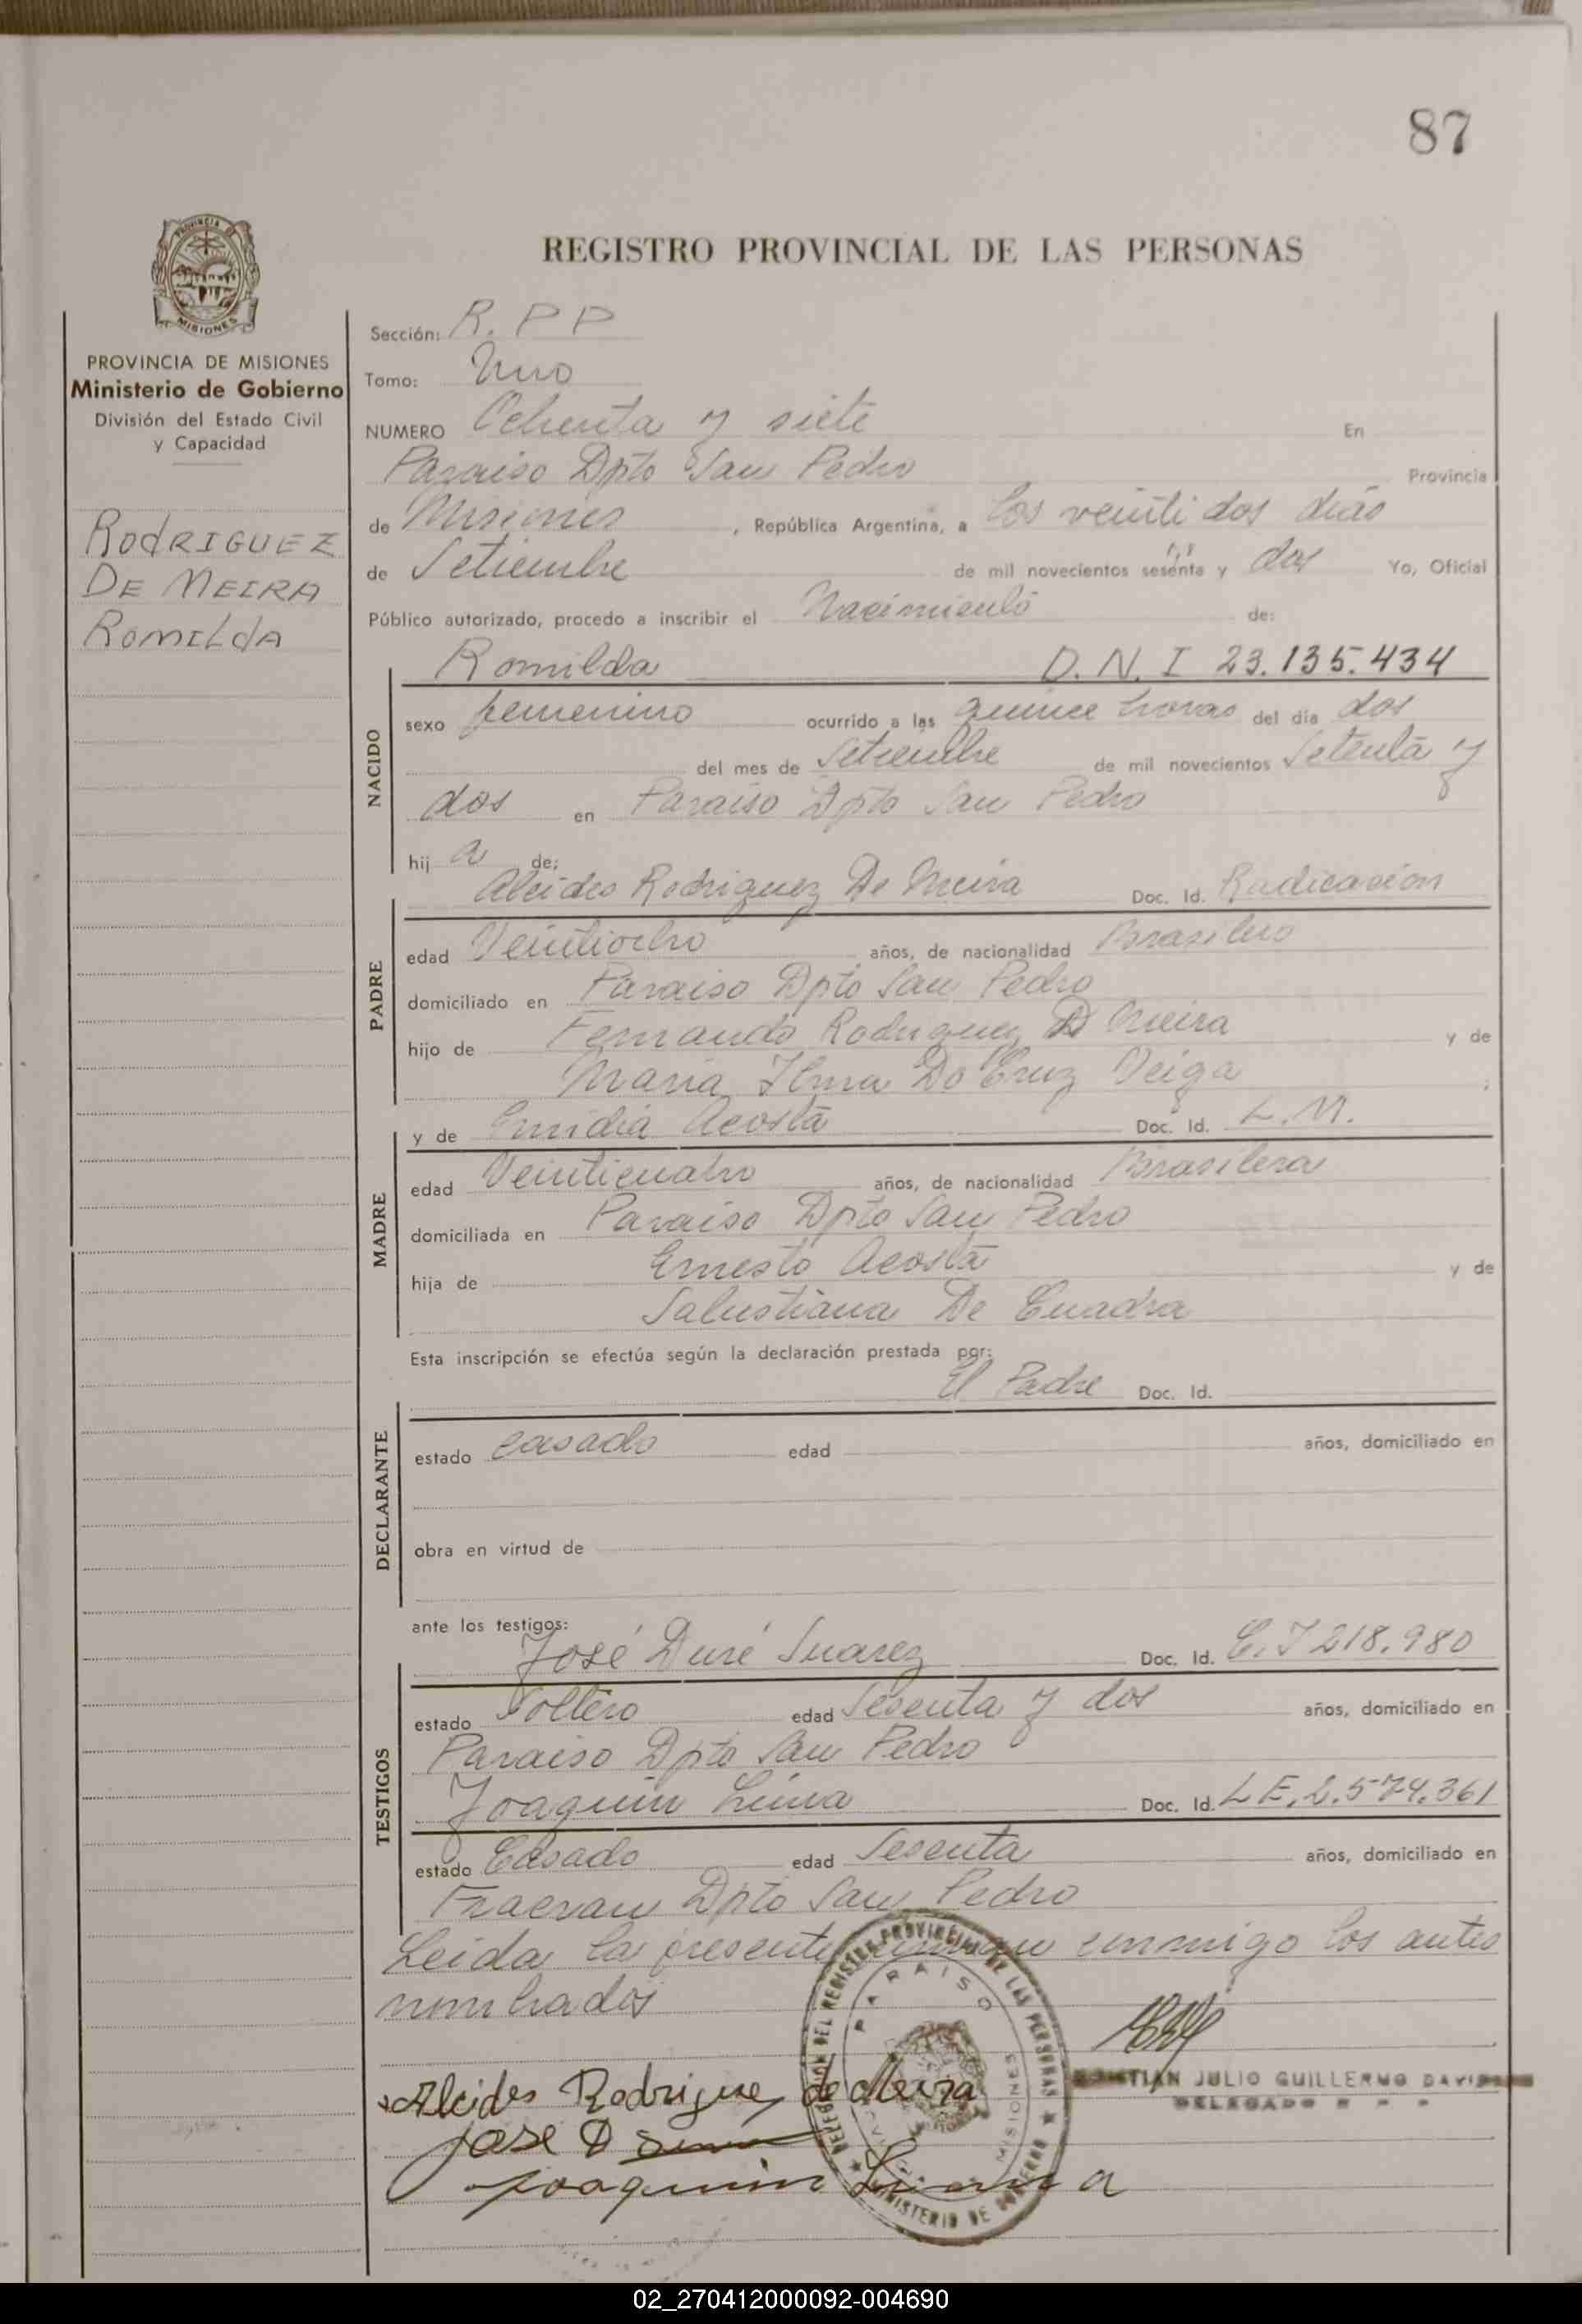 87
REGISTRO PROVINCIAL DE LAS PERSONAS
MISIONES
PROVINCIA DE MISIONES
Ministerio de Gobierno
División del Estado Civil
y Capacidad
RODRIGUEZ
DE MEIRA
ROMILDA
Sección: R. P P
Tomo: Uno
NUMERO Ochenta y siete En
Paraiso Dpto San Pedro Provincia
de Misiones, República Argentina, a los veinti dos dias
de Setiembre de mil novecientos sesenta y dos Yo, Oficial
Público autorizado, procedo a inscribir el Nacimiento de:
NACIDO
Romilda D.N.I 23.135.434
sexo femenino ocurrido a las quince horas del día dos
del mes de Setiembre de mil novecientos Setenta y
dos en Paraiso Dpto San Pedro
hij a de:
PADRE
Alcides Rodriguez De Meira Doc. Id. Radicacion
edad Veintiocho años, de nacionalidad Brasilero
domiciliado en Paraiso Dpto San Pedro
hijo de Fernando Rodriguez D Meira y de
Maria Ilma Do Cruz Veiga ;
MADRE
y de Emidia Acosta Doc. Id. L.M.
edad Veinticuatro años, de nacionalidad Brasilera
domiciliada en Paraiso Dpto San Pedro
hija de Ernesto Acosta y de
Salustiana De Cuadra
Esta inscripción se efectúa según la declaración prestada por:
DECLARANTE
El Padre Doc. Id.
estado casado edad años, domiciliado en
obra en virtud de
ante los testigos:
TESTIGOS
José Duré Suarez Doc. Id. C.I 218.980
estado Soltero edad Sesenta y dos años, domiciliado en
Paraiso Dpto San Pedro
Joaquin Doc. Id. L E. 2.574.361
estado Casado edad Sesenta años, domiciliado en
Fracran Dpto San Pedro
Leida la presente firman conmigo los antes
nombrados
DELEGACION DEL REGISTRO PROVINCIAL DE LAS PERSONAS
PARAISO
MISIONES
MINISTERIO DE GOBIERNO
JULIO GUILLERMO
DELEGADO
Alcides Rodriguez de Meira
Jose D
Joaquim
02_270412000092-004690